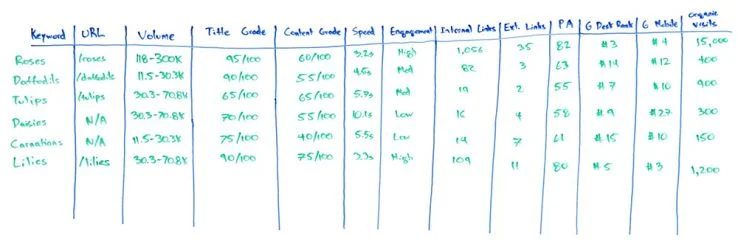 Keyword URL Volume Title Grade Content Grade Speed Engagement Internal Links Ext. Links PA G Desk Rank G Mobile Organic Visits
Roses /roses 118-300K 95/100 60/100 3.2s High 1,056 35 82 #3 #4 15,000
Daffodils /daffodils 11.5-30.3K 90/100 55/100 4.5s Med 82 3 63 #14 #12 400
Tulips /tulips 30.3-70.8K 65/100 65/100 5.7s Med 19 2 55 #7 #10 900
Daisies N/A 30.3-70.8K 70/100 55/100 10.1s Low 16 4 58 #9 #27 300
Carnations N/A 11.5-30.3K 75/100 40/100 5.5s Low 14 7 61 #15 #10 150
Lilies /lilies 30.3-70.8K 90/100 75/100 High 109 11 80 #5 #3 1,200